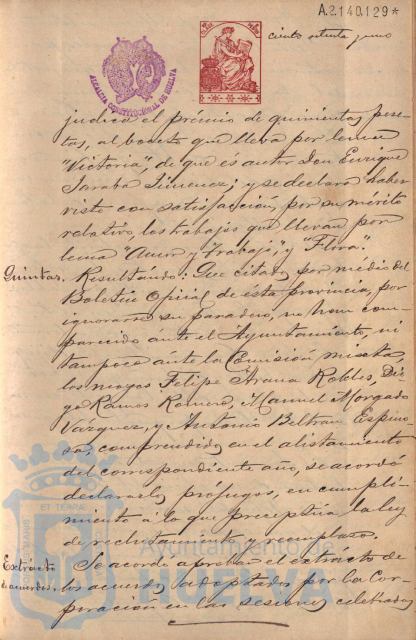 A.2140.129*
ciento ochenta y uno
ALCALDIA CONSTITUCIONAL DE HUELVA
judica el premio de quinientas pese-
tas, al boceto que lleva por lema
"Victoria", de que es autor Don Enrique
Jimenez; y se declara haber
visto con satisfacción, por su mérito
relativo, los trabajos que llevan por
lema "Amor y Trabajo", y "Flora".
Quintas. Resultando: Que citados por medio del
Boletín Oficial de esta provincia, por
ignorarse su paradero, no han com-
parecido ante el Ayuntamiento, ni
tampoco ante la Comisión mixta,
los mozos Felipe Arana Robles, Die-
go Ramos Romero, Manuel Morgado
Vazquez, y Antonio Beltran Espino-
sa, comprendidos en el alistamiento
del correspondiente año, se acordó
declararles prófugos, en cumpli-
miento á lo que preceptúa la ley
de reclutamiento y reemplazo.
Extracto de acuerdos. Se acordó aprobar el extracto de
los acuerdos adoptados por la Cor-
poración en las sesiones celebradas
Ayuntamiento de
HUELVA